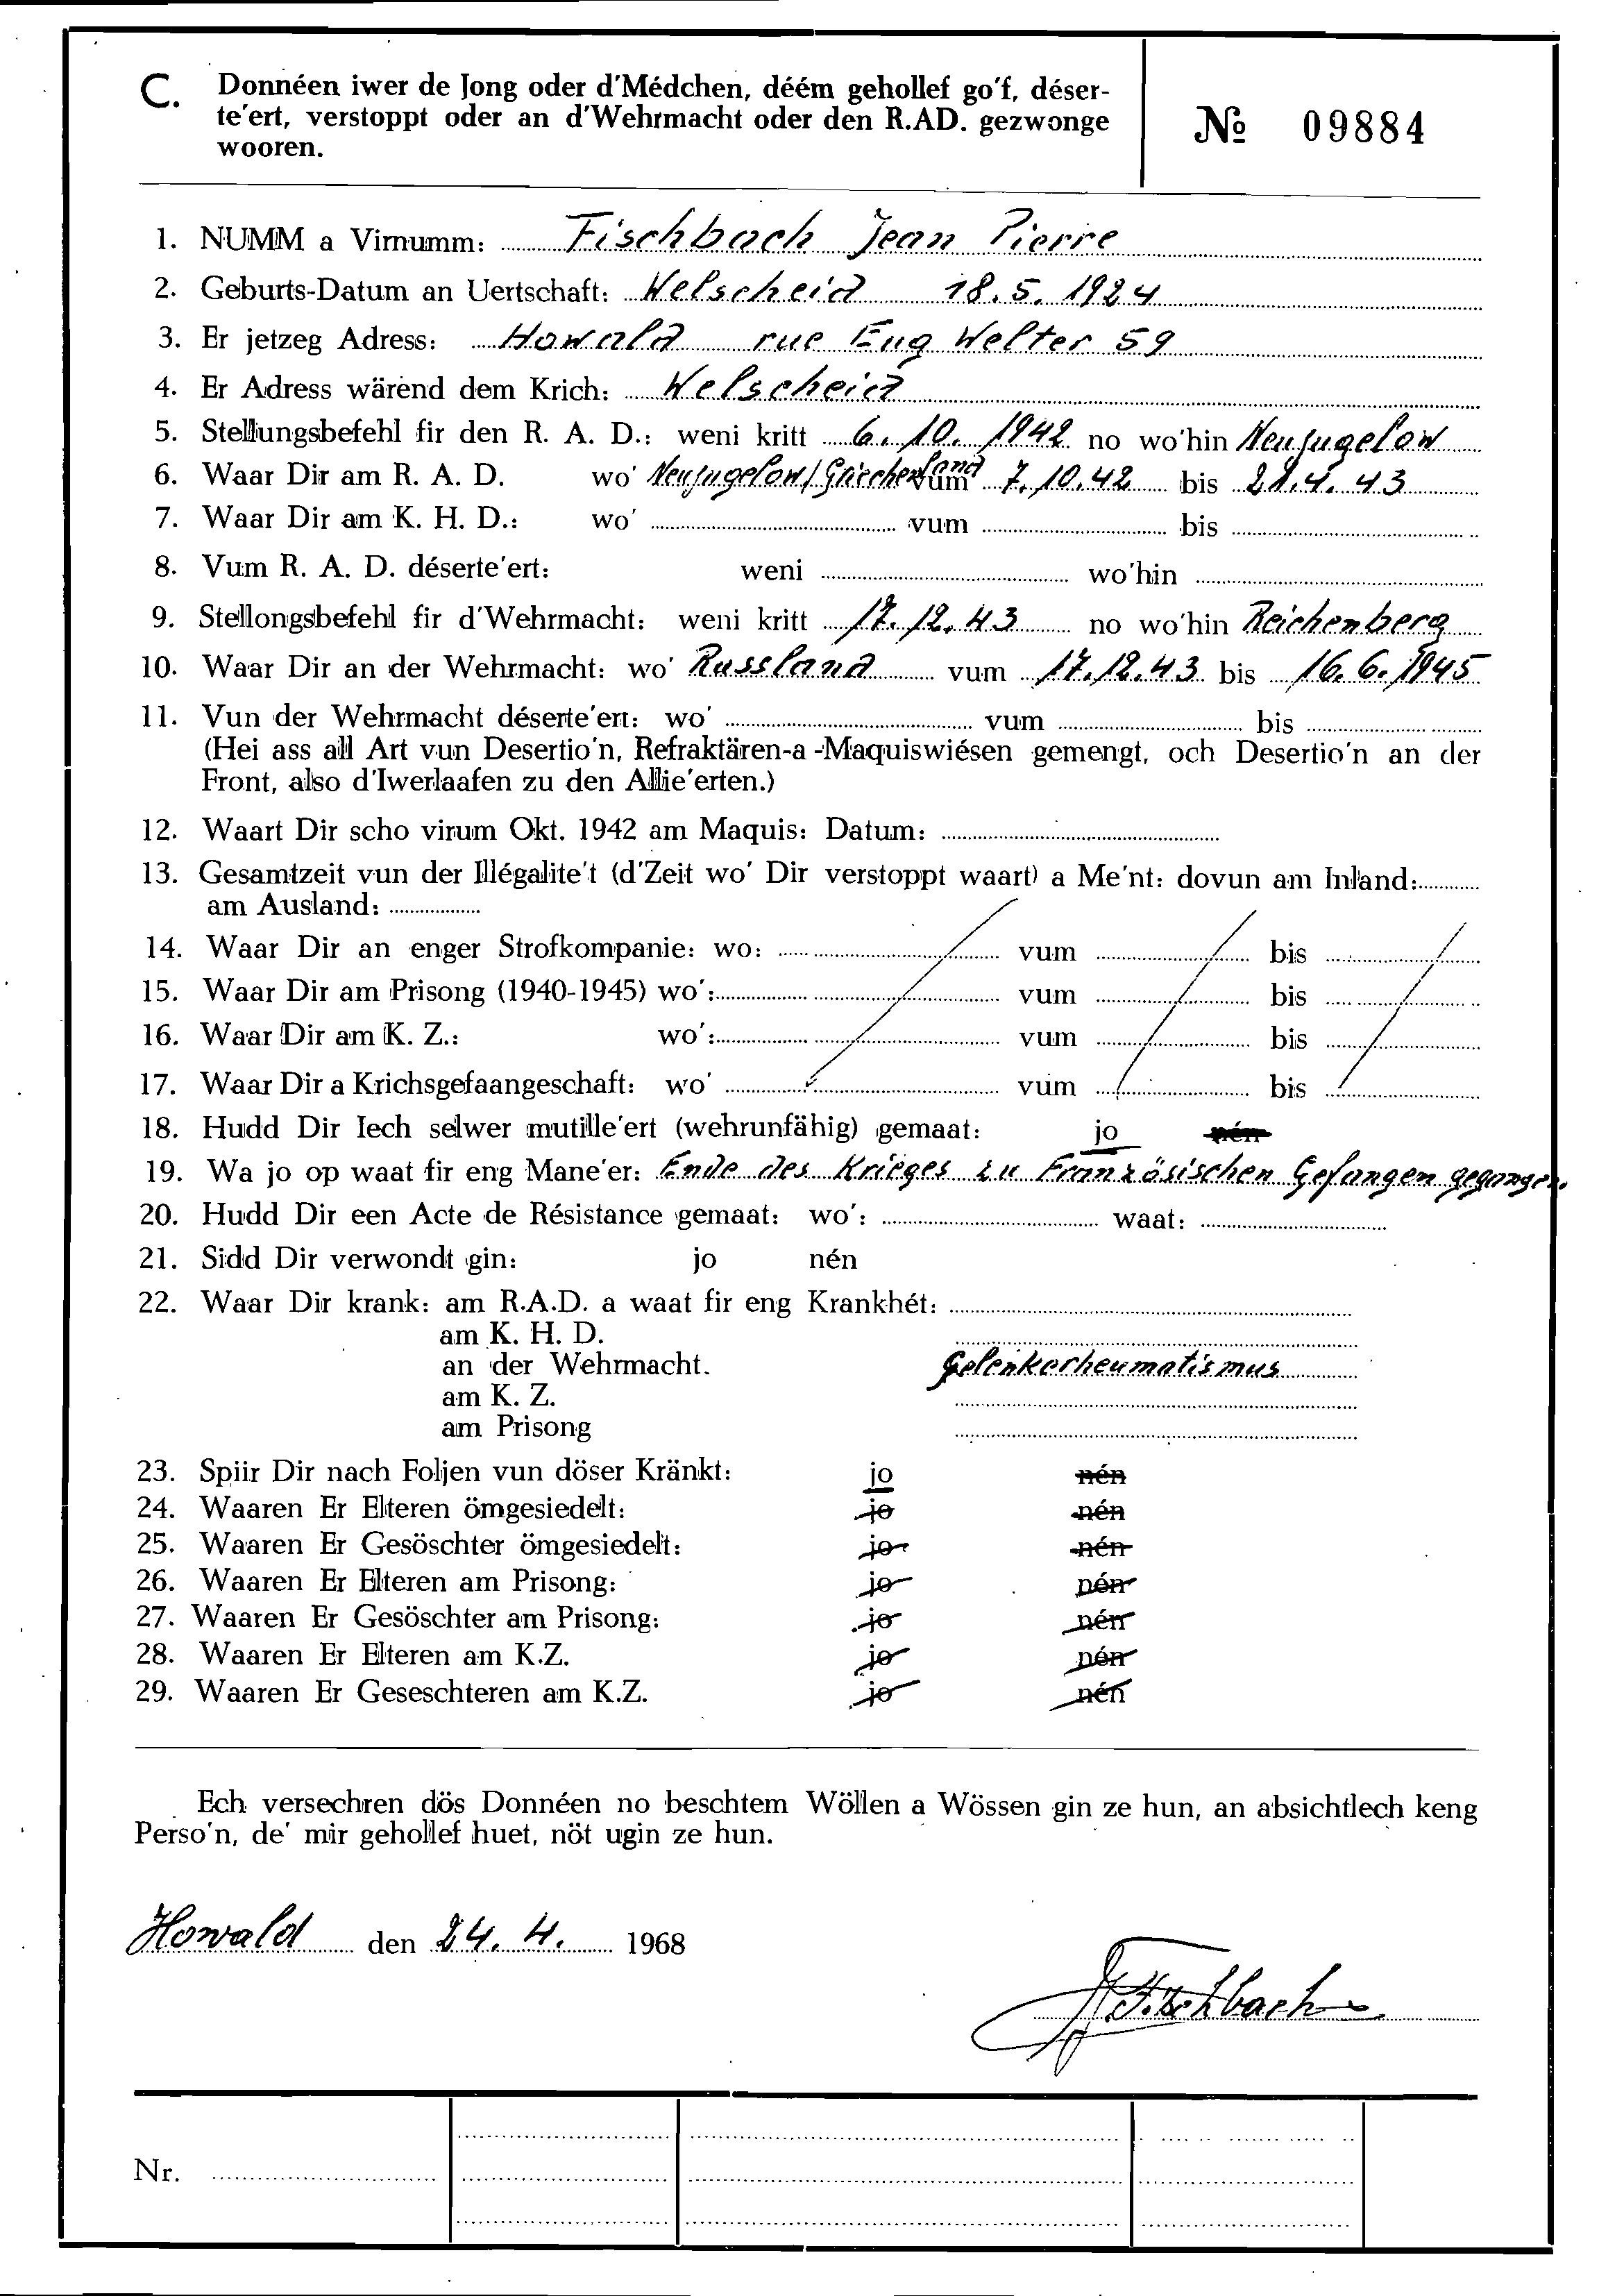 C. Donnéen iwer de Jong oder d'Médchen, déém gehollef go'f, déser-
te'ert, verstoppt oder an d'Wehrmacht oder den R.AD. gezwonge
wooren.
№ 09884
1. NUMM a Virnumm: Fischbach Jean Pierre
2. Geburts-Datum an Uertschaft: Welscheid 18.5.1924
3. Er jetzeg Adress: Howald rue Eug Welter 59
4. Er Adress wärend dem Krich: Welscheid
5. Stellungsbefehl fir den R. A. D.: weni kritt 6.10.1942 no wo'hin Neujugelow
6. Waar Dir am R. A. D. wo' Neujugelow/Griechenland vum 7.10.42 bis 21.4.43
7. Waar Dir am K. H. D.: wo' vum bis
8. Vum R. A. D. déserte'ert: weni wo'hin
9. Stellongsbefehl fir d'Wehrmacht: weni kritt 17.12.43 no wo'hin Reichenberg
10. Waar Dir an der Wehrmacht: wo' Russland vum 17.12.43 bis 16.6.1945
11. Vun der Wehrmacht déserte'ert: wo' vum bis
(Hei ass all Art vun Desertio'n, Refraktären-a -Maquiswiésen gemengt, och Desertio'n an der
Front, also d'Iwerlaafen zu den Allie'erten.)
12. Waart Dir scho virum Okt. 1942 am Maquis: Datum:
13. Gesamtzeit vun der Illégalite't (d'Zeit wo' Dir verstoppt waart) a Me'nt: dovun am Inland:
am Ausland:
14. Waar Dir an enger Strofkompanie: wo: vum bis
15. Waar Dir am Prisong (1940-1945) wo': vum bis
16. Waar Dir am K. Z.: wo': vum bis
17. Waar Dir a Krichsgefaangeschaft: wo' vum bis
18. Hudd Dir Iech selwer mutille'ert (wehrunfähig) gemaat: jo nén
19. Wa jo op waat fir eng Mane'er: Ende des Krieges zu Französischen Gefangen gegangen.
20. Hudd Dir een Acte de Résistance gemaat: wo': waat:
21. Sidd Dir verwondt gin: jo nén
22. Waar Dir krank: am R.A.D. a waat fir eng Krankhét:
am K. H. D.
an der Wehrmacht. Gelenkerheumatismus
am K. Z.
am Prisong
23. Spiir Dir nach Foljen vun döser Kränkt: jo nén
24. Waaren Er Elteren ömgesiedelt: jo nén
25. Waaren Er Gesöschter ömgesiedelt: jo nén
26. Waaren Er Elteren am Prisong: jo nén
27. Waaren Er Gesöschter am Prisong: jo nén
28. Waaren Er Elteren am K.Z. jo nén
29. Waaren Er Geseschteren am K.Z. jo nén
Ech versechren dös Donnéen no beschtem Wöllen a Wössen gin ze hun, an absichtlech keng
Perso'n, de' mir gehollef huet, nöt ugin ze hun.
Howald den 24. 4. 1968
J.Fischbach
Nr.